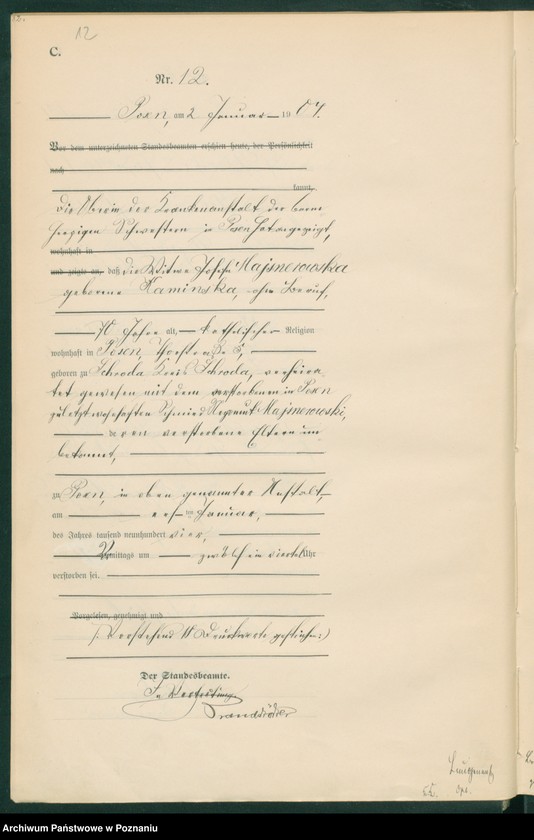 12
C.
Nr. 12.
Posen, am 2 Januar 1904.
Vor dem unterzeichneten Standesbeamten erschien heute, der Persönlichkeit
nach
kannt,
Die Oberin der Krankenanstalt der barm-
herzigen Schwestern in Posen hat angezeigt,
wohnhaft in
und zeigte an, daß die Witwe Josefa Majsnerowska
geborene Kaminska, ohne Beruf,
70 Jahre alt, katholischer Religion
wohnhaft in Posen, Thorstraße
geboren zu Schroda Kreis Schroda, verheira-
tet gewesen mit dem verstorbenen in Posen
zuletzt wohnhaften Schmied Majsnerowski,
deren verstorbene Eltern un-
bekannt,
zu Posen, in oben genannter Anstalt,
am ersten Januar,
des Jahres tausend neunhundert vier,
Vormittags um zwölf ein viertel Uhr
verstorben sei.
Vorgelesen, genehmigt und
(: Vorstehend Druckworte gestrichen :)
Der Standesbeamte.
In Vertretung
Archiwum Państwowe w Poznaniu